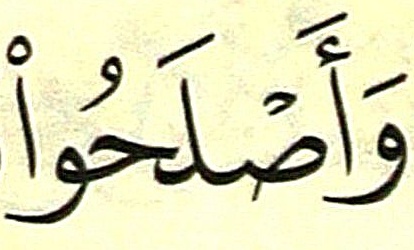 وَأَصْلَحُوا۟